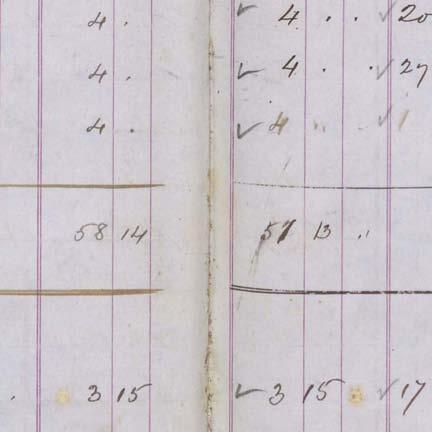 4 . ✓ 4 . . ✓ 20
4 . ✓ 4 . . ✓ 27
4 . ✓ 4 " . ✓ 1
58 14 57 13 "
. 3 15 ✓ 3 15 ✓ 17